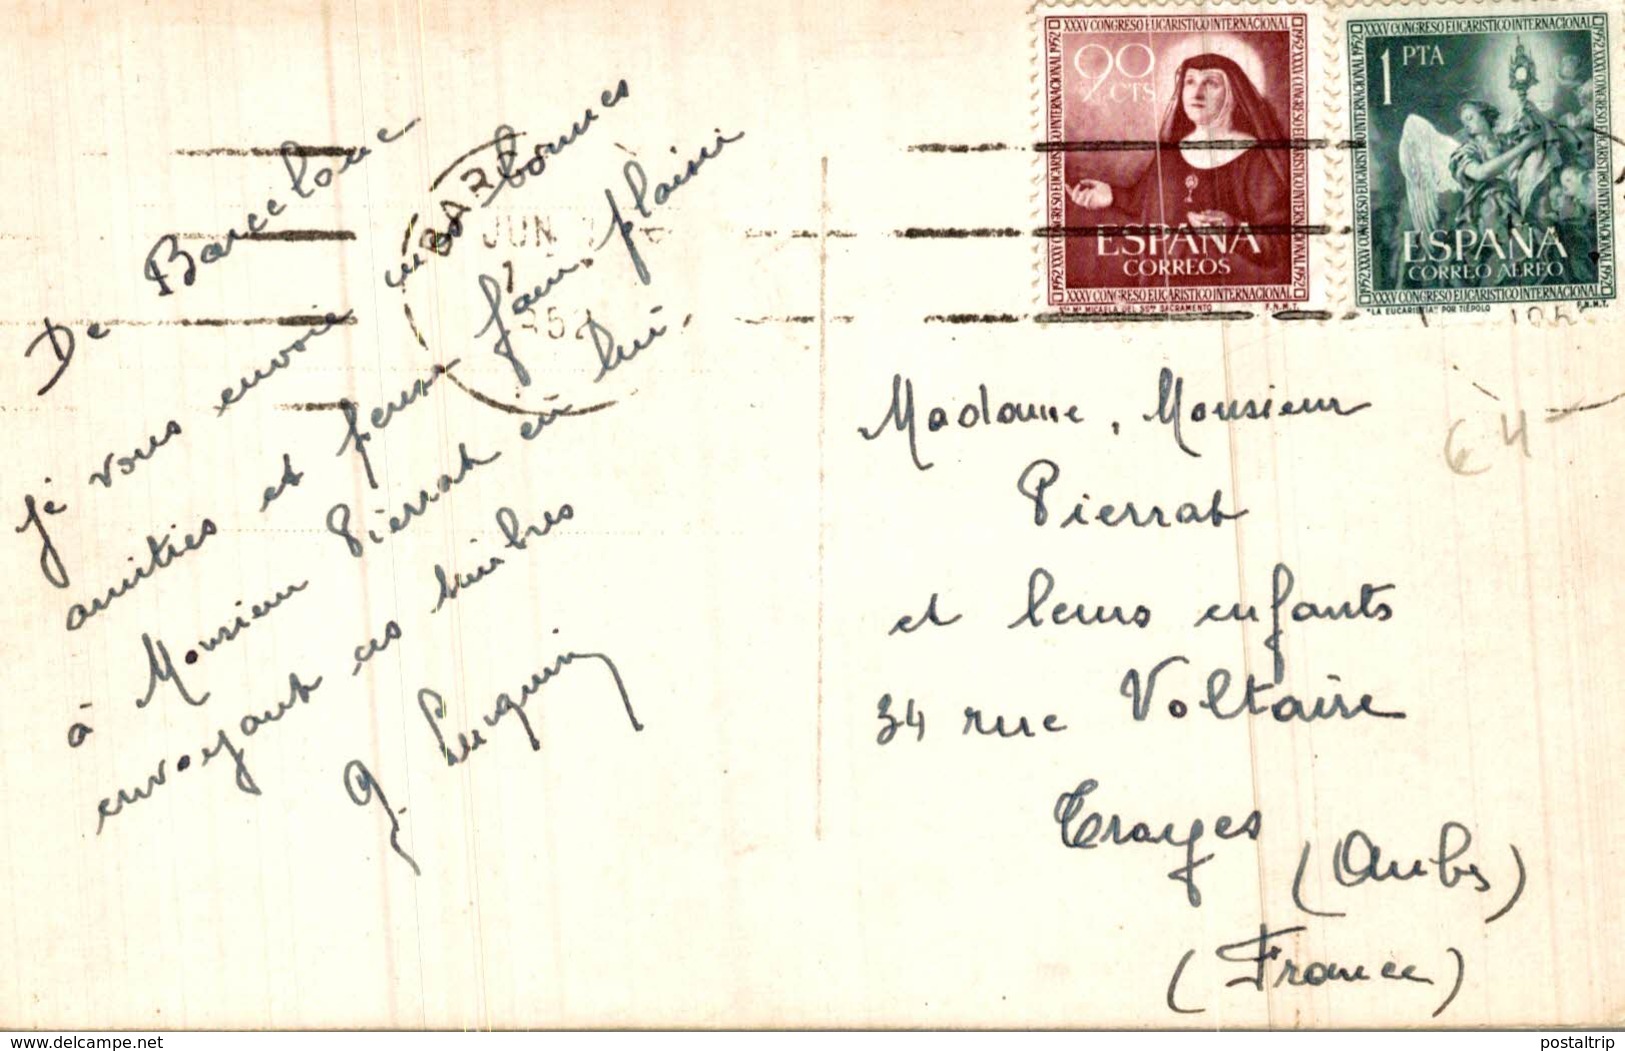 De Barcelone
je vous envoie mes bonnes
amitiés et pense faire plaisir
à Monsieur Pierrat en lui
envoyant ces timbres
Luquin
BAR
JUN
952
XXXV CONGRESO EUCARISTICO INTERNACIONAL
1952
90 CTS
ESPAÑA
CORREOS
STA Mª MICAELA DEL SSMO SACRAMENTO F.N.M.T.
XXXV CONGRESO EUCARISTICO INTERNACIONAL
1952
1 PTA
ESPAÑA
CORREO AEREO
"LA EUCARISTIA" POR TIEPOLO F.N.M.T.
Madame, Monsieur
Pierrat
et leurs enfants
34 rue Voltaire
Troyes
(Aube)
(France)
€4-
www.delcampe.net
postaltrip